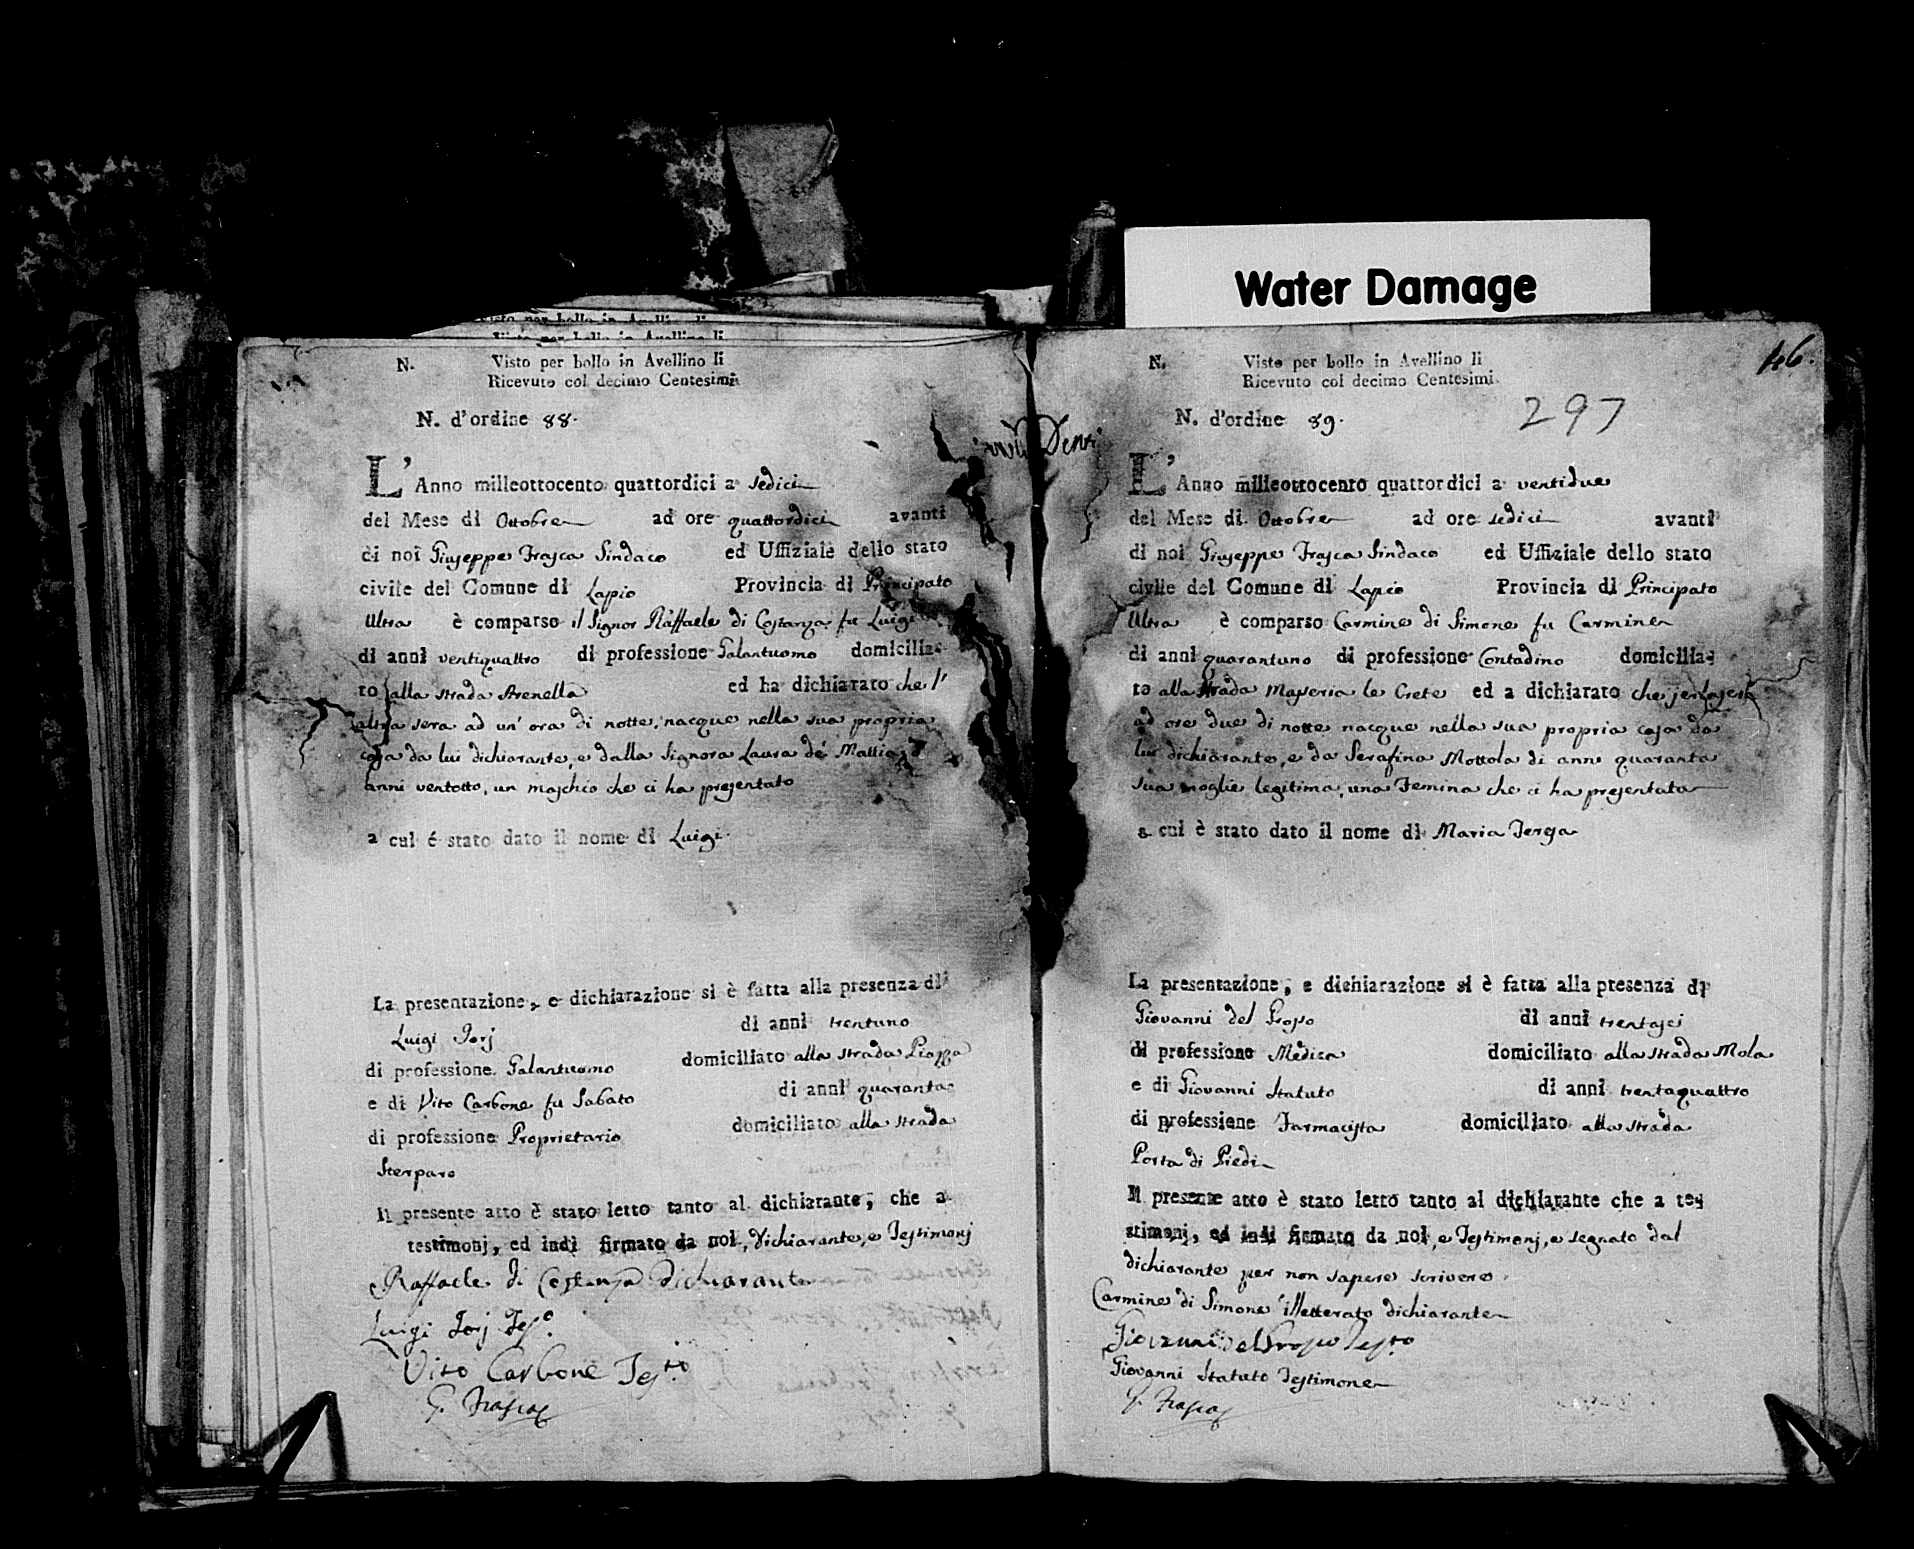 Water Damage
N. Visto per bollo in Avellino li
Ricevuto col decimo Centesimi
N. d'ordine 88.
L'Anno milleottocento quattordici a sedici
del Mese di Ottobre ad ore quattordici avanti
di noi Giuseppe Frasca Sindaco ed Uffiziale dello stato
civile del Comune di Lapio Provincia di Principato
Ultra è comparso il Signor Raffaele di Costanza fu Luigi
di anni ventiquattro di professione Galantuomo domicilia-
to alla strada Arenella ed ha dichiarato che l'
altra sera ad un' ora di notte, nacque nella sua propria
casa da lui dichiarante, e dalla Signora Laura de Mattia d
anni ventotto, un maschio che ci ha presentato
a cui é stato dato il nome di Luigi.
La presentazione, e dichiarazione si è fatta alla presenza di
Luigi Jorj di anni trentuno
di professione Galantuomo domiciliato alla strada Piazza
e di Vito Carbone fu Sabato di anni quaranta
di professione Proprietario domiciliato alla strada
Sterparo
Il presente atto è stato letto tanto al dichiarante, che a
testimonj, ed indi firmato da noi, Dichiarante, e Testimonj
Raffaele di Costanza dichiarante
Luigi Jorj Tes.º
Vito Carbone Tes.to
G. Frasca
46.
N. Visto per bollo in Avellino li
Ricevuto col decimo Centesimi.
297
N. d'ordine 89.
L'Anno milleottocento quattordici a ventidue
del Mese di Ottobre ad ore sedici avanti
di noi Giuseppe Frasca Sindaco ed Uffiziale dello stato
civile del Comune di Lapio Provincia di Principato
Ultra è comparso Carmine di Simone fu Carmine
di anni quarantuno di professione Contadino domicilia-
to alla strada Maseria le Crete ed a dichiarato che jersera
ad ore due di notte nacque nella sua propria casa da
lui dichiarante, e da Serafina Mottola di anni quaranta
sua moglie legitima, una Femina che ci ha presentata
a cui è stato dato il nome di Maria Teresa
La presentazione, e dichiarazione si è fatta alla presenza di
Giovanni del Grosso di anni trentasei
di professione Medico domiciliato alla strada Mola
e di Giovanni Statuto di anni trentaquattro
di professione Farmacista domiciliato alla strada
Porta di Piedi
Il presente atto è stato letto tanto al dichiarante che a te-
stimonj, ed indi firmato da noi, e Testimonj, e segnato dal
dichiarante per non sapere scrivere.
Carmine di Simone illetterato dichiarante
Giovanni del Grosso Testo
Giovanni Statuto Testimone
G. Frasca